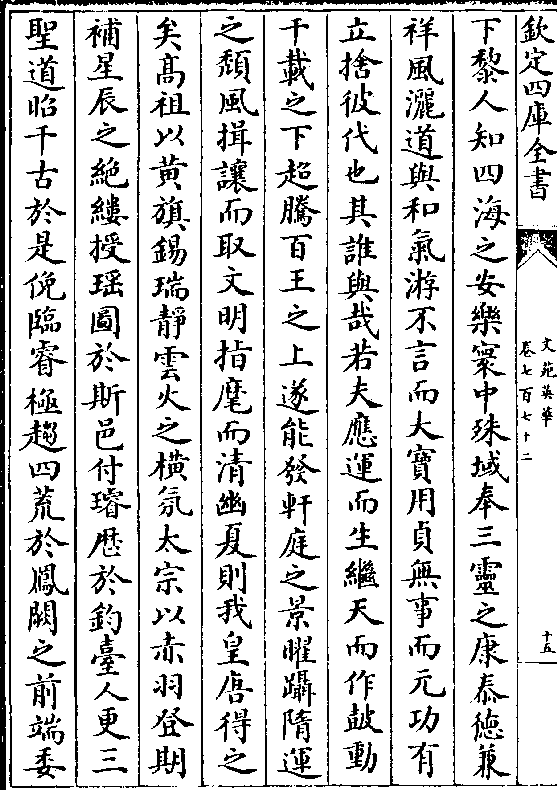 欽定四庫全書
文苑英華
卷七百七十二
十五
下黎人知四海之安樂寰中珠域奉三靈之康泰德兼
祥風灑道與和氣游不言而大寶用貞無事而元功有
立捨彼代也其誰與哉若夫應運而生繼天而作鼓動
千載之下超騰百王之上遂能發軒庭之景曜躡隋運
之頽風揖讓而取文明指麾而清幽夏則我皇唐得之
矣髙祖以黄旗錫瑞靜雲火之橫氛太宗以赤羽登期
補星辰之絶縷授瑶圖於斯邑付璿厯於釣臺人更三
聖道昭千古於是俛臨睿極趨四荒於鳳闕之前端委